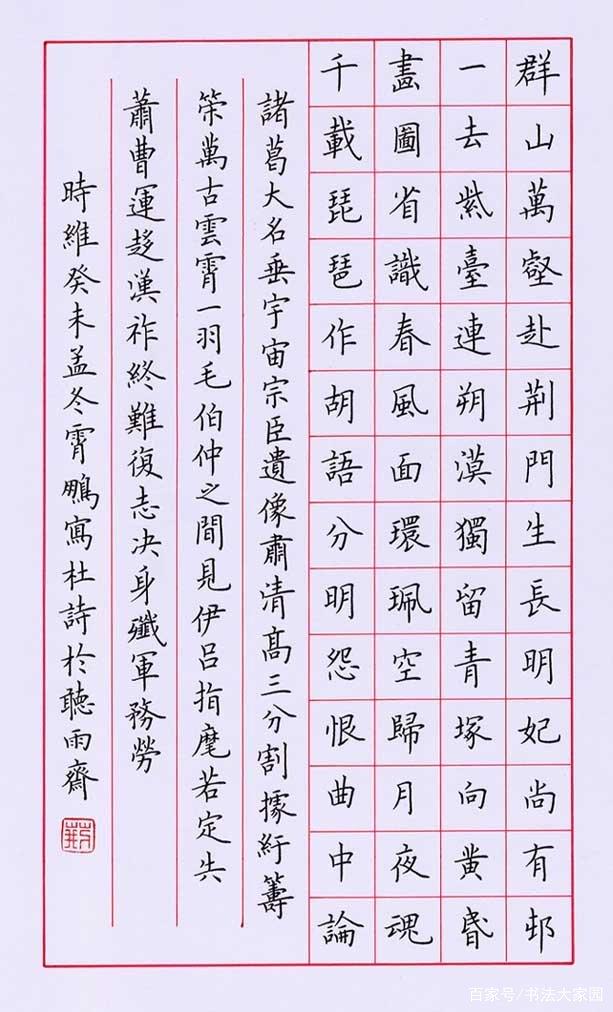 群山萬壑赴荆門生長明妃尚有邨
一去紫臺連朔漠獨留青塚向黄昬
畫圖省識春風面環珮空歸月夜魂
千載琵琶作胡語分明怨恨曲中論
諸葛大名垂宇宙宗臣遺像肅清高三分割據紆籌
策萬古雲霄一羽毛伯仲之間見伊吕指麾若定失
蕭曹運趍漢祚終難復志决身殲軍務勞
時維癸未孟冬霄鵬寫杜詩於聽雨齋
百家号/书法大家园